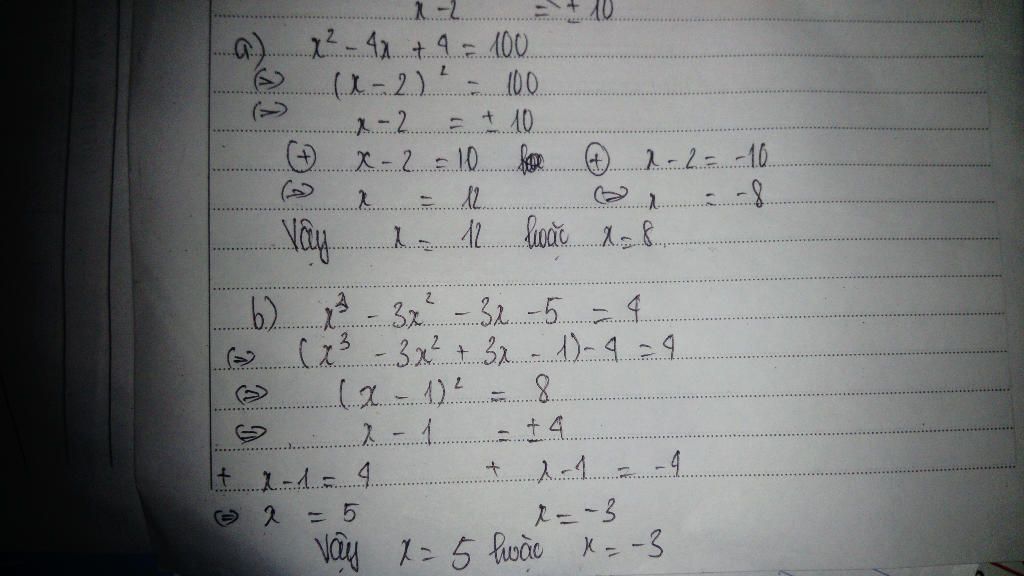 x-2 = ± 10
a) x² - 4x + 4 = 100
⇔ (x - 2)² = 100
⇔ x - 2 = ± 10
⊕ x - 2 = 10 ⊕ x - 2 = -10
⇔ x = 12 ⇔ x = -8
Vậy x = 12 hoặc x = 8.
b) x³ - 3x² - 3x - 5 = 4
⇔ (x³ - 3x² + 3x - 1) - 4 = 4
⇔ (x - 1)² = 8
⇔ x - 1 = ± 4
+ x - 1 = 4 + x - 1 = -4
⇔ x = 5 x = -3
Vậy x = 5 hoặc x = -3